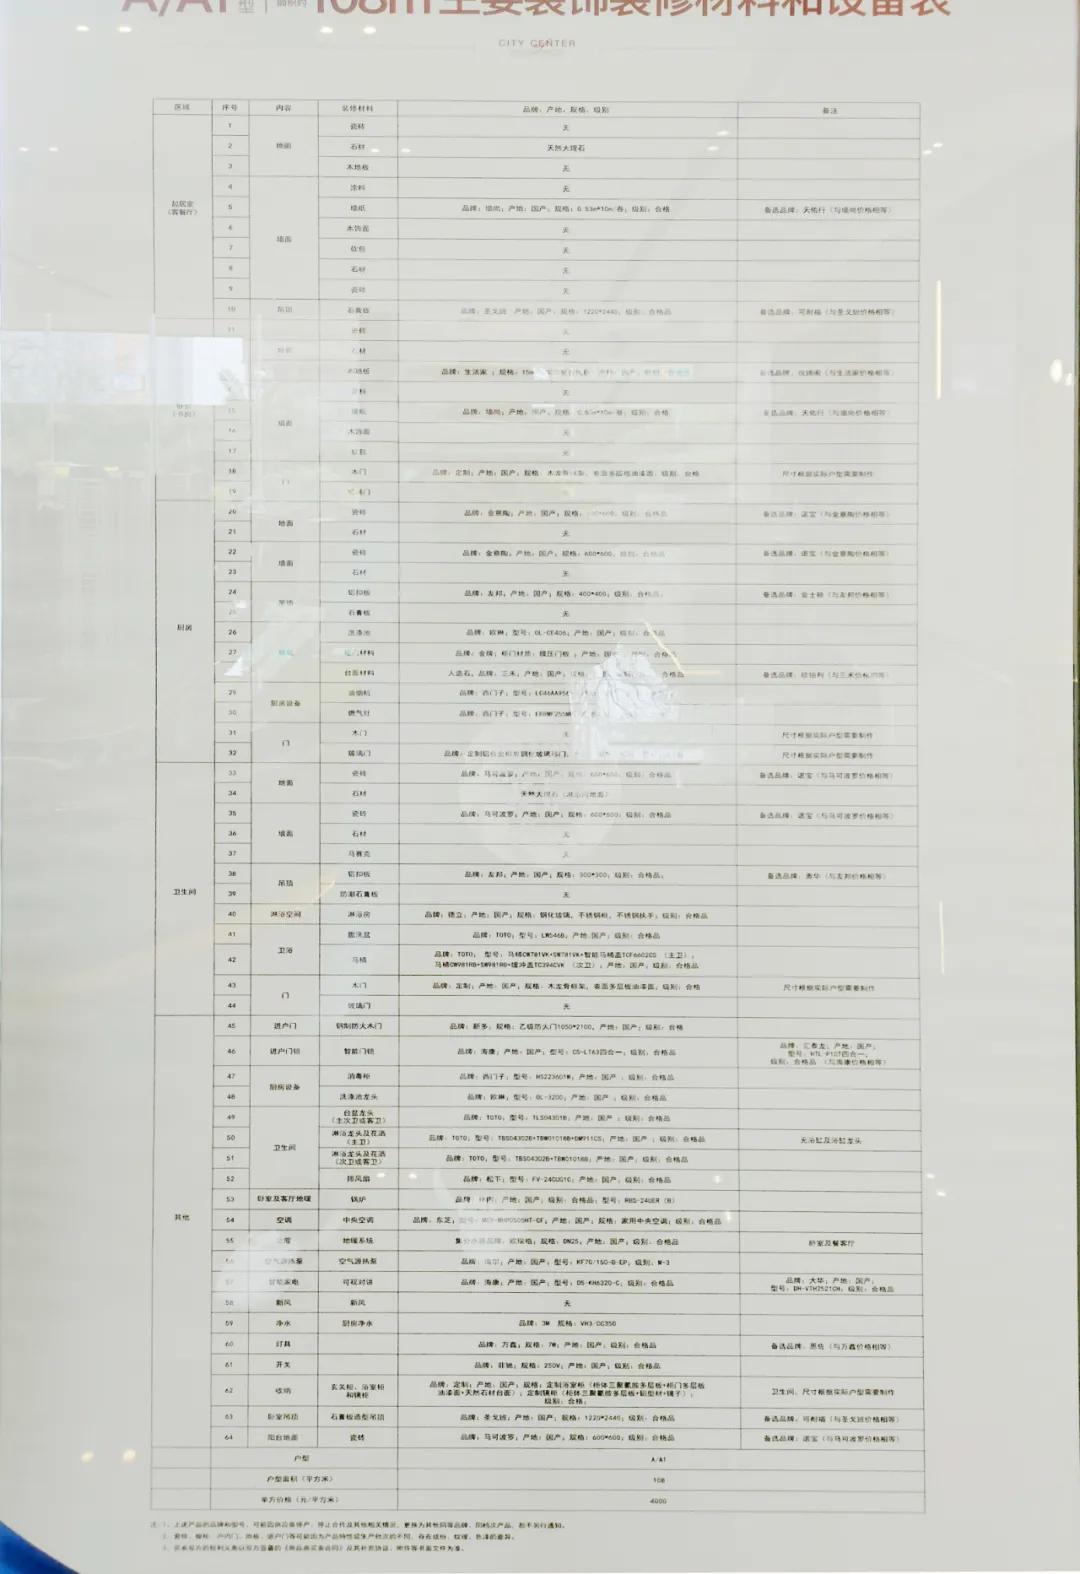 A/A1 型 108㎡主要装饰装修材料和设备表
CITY CENTER
区域 序号 内容 装修材料 品牌、产地、规格、级别 备注
起居室
(客餐厅)
1 地面 瓷砖 无
2 石材 天然大理石
3 木地板 无
4 墙面 涂料 无
5 墙纸 品牌：墙尚；产地：国产；规格：0.53m*10m/卷；级别：合格 备选品牌：天佑行（与墙尚价格相等）
6 木饰面 无
7 软包 无
8 石材 无
9 瓷砖 无
10 吊顶 石膏板 品牌：圣戈班 产地：国产；规格：1220*2440；级别：合格品 备选品牌：可耐福（与圣戈班价格相等）
11 瓷砖 无
石材 无
木地板 品牌：生活家；规格：15m （与生活家价格相等）
涂料 无
15 墙面 墙纸 品牌：墙尚；产地：国产；规格：0.53m*10m/卷；级别：合格 备选品牌：天佑行（与墙尚价格相等）
16 木饰面 无
17 软包 无
18 门 木门 品牌：定制；产地：国产；规格：木龙骨框架，表面多层板油漆面；级别：合格 尺寸根据实际户型需要制作
19
厨房
20 地面 瓷砖 品牌：金意陶；产地：国产；规格： 级别：合格品 备选品牌：诺宝（与金意陶价格相等）
21 石材 无
22 墙面 瓷砖 品牌：金意陶；产地：国产；规格：600*600；级别：合格品 备选品牌：诺宝（与金意陶价格相等）
23 石材 无
24 吊顶 铝扣板 品牌：友邦；产地：国产；规格：400*400；级别：合格品； （与友邦价格相等）
25 石膏板 无
26 洗涤池 品牌：欧琳；型号：OL-CE406；产地：国产；级别：合格品
27 柜门材料 品牌：金牌；柜门材质：模压门板；产地：国产 合格品
台面材料 人造石，品牌：三禾；产地：国产； 合格品 （与三禾价格相等）
29 厨房设备 油烟机 品牌：西门子；型号：
30 燃气灶 品牌：西门子；型号：
31 门 木门 无 尺寸根据实际户型需要制作
32 玻璃门 品牌：定制 尺寸根据实际户型需要制作
卫生间
33 地面 瓷砖 品牌：马可波罗；产地：国产；规格：600*600；级别：合格品 备选品牌：诺宝（与马可波罗价格相等）
34 石材 天然大理石（淋浴间地面）
35 墙面 瓷砖 品牌：马可波罗；产地：国产；规格：600*600；级别：合格品 备选品牌：诺宝（与马可波罗价格相等）
36 石材 无
37 马赛克 无
38 吊顶 铝扣板 品牌：友邦；产地：国产；规格：300*300；级别：合格品； 备选品牌：奥华（与友邦价格相等）
39 防潮石膏板 无
40 淋浴空间 淋浴房 品牌：德立；产地：国产；规格：钢化玻璃，不锈钢框，不锈钢执手；级别：合格品
41 卫浴 盥洗盆 品牌：TOTO；型号：LW546B；产地：国产；级别：合格品
42 马桶 品牌：TOTO； 型号：马桶CW781VK+SW781VK+智能马桶盖TCF6602CS （主卫）；
马桶CW981RB+SW981RB+缓冲盖TC394CVK （次卫）；产地：国产；级别：合格品
43 门 木门 品牌：定制；产地：国产；规格：木龙骨框架，表面多层板油漆面；级别：合格 尺寸根据实际户型需要制作
44 玻璃门 无
其他
45 进户门 钢制防火木门 品牌：新多；规格：乙级防火门1050*2100，产地：国产；级别：合格
46 进户门锁 智能门锁 品牌：海康；产地：国产；型号：CS-L163四合一；级别：合格品 品牌：汇泰龙；产地：国产；
型号：HTL-P10T四合一；
级别：合格品 （与海康价格相等）
47 厨房设备 消毒柜 品牌：西门子；型号：HS223601W；产地：国产 ；级别：合格品
48 洗涤池龙头 品牌：欧琳；型号：OL-3200；产地：国产 ；级别：合格品
49 卫生间 台盆龙头
（主次卫或客卫） 品牌：TOTO；型号：TLS04301B；产地：国产 ；级别：合格品
50 淋浴龙头及花洒
（主卫） 品牌：TOTO；型号：TBS04302B+TBW01016B+DM911CS；产地：国产 ；级别：合格品 无浴缸及浴缸龙头
51 淋浴龙头及花洒
（次卫或客卫） 品牌：TOTO；型号：TBS04302B+TBW01016B；产地：国产；级别：合格品
52 排风扇 品牌：松下；型号：FV-24CUG1C；产地：国产，级别：合格品
53 卧室及客厅地暖 锅炉 产地：国产；级别：合格品；型号：RBS-24UER（B）
54 空调 中央空调 品牌：东芝；型号： 产地：国产；规格：家用中央空调；级别：合格品
55 地暖系统 集分水器品牌：欧标格；规格：DN25；产地：国产；级别：合格品 卧室及餐客厅
空气源热泵 空气源热泵 产地：国产；型号：KF70/150-B-EP；级别：W-3
57 智能家电 可视对讲 品牌：海康；产地：国产；型号：DS-KH6320-C；级别：合格品 品牌：大华；产地：国产；
型号：DH-VTH2521CH；级别：合格品
58 新风 新风 无
59 净水 厨房净水 品牌：3M 规格：VH3-CG350
60 灯具 品牌：万鑫；规格：7W；产地：国产；级别：合格品 备选品牌：恩佐（与万鑫价格相等）
61 开关 品牌：菲驰；规格：250V；产地：国产；级别：合格品
62 收纳 玄关柜、浴室柜
和镜柜 品牌：定制；产地：国产；规格：定制浴室柜（柜体三聚氰胺多层板+柜门多层板
油漆面+天然石材台面）；定制镜柜（柜体三聚氰胺多层板+铝型材+镜子）；
级别：合格； 卫生间，尺寸根据实际户型需要制作
63 卧室吊顶 石膏板造型吊顶 品牌：圣戈班；产地：国产；规格：1220*2440；级别：合格品 备选品牌：可耐福（与圣戈班价格相等）
64 阳台地面 瓷砖 品牌：马可波罗；产地：国产；规格：600*600；级别：合格品 备选品牌：诺宝（与马可波罗价格相等）
户型 A/A1
户型面积（平方米） 108
单方价格（元/平方米） 4000
注：1、上述产品的品牌和型号，可能因供应商停产、停止合作及其他相关情况，更换为其他同等品牌、同档次产品，恕不另行通知。
2、瓷砖、橱柜、户内门、地板、进户门等可能因为产品特性或生产批次的不同，存在纹纱、纹理、色泽的差异。
3、买卖双方的权利义务以双方签署的《商品房买卖合同》及其补充协议、附件等书面文件为准。